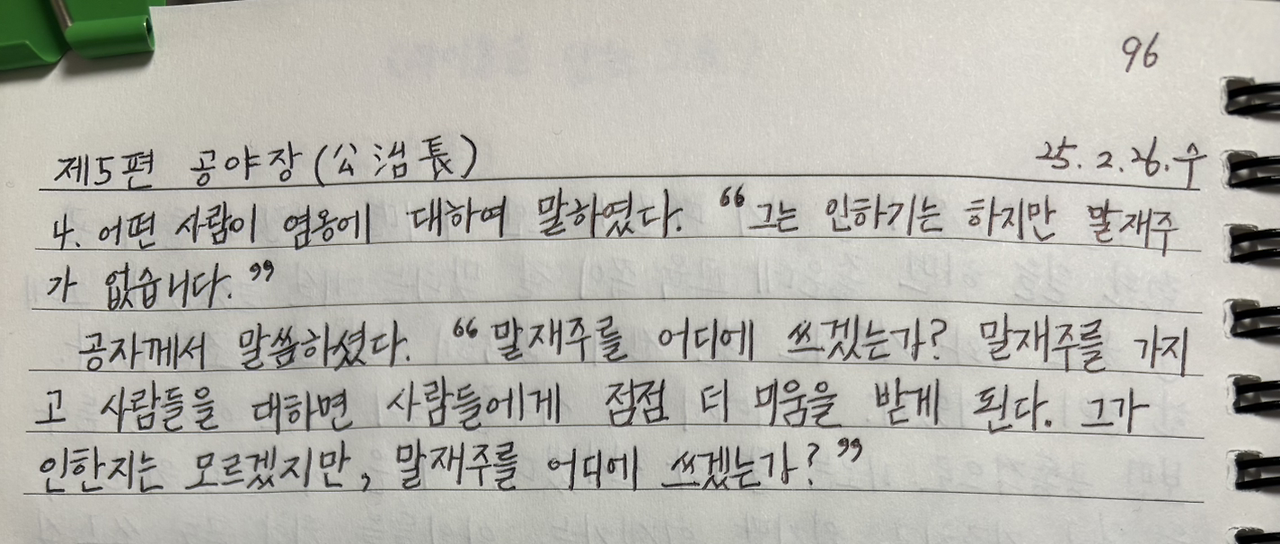 96
제5편 공야장(公冶長) 25.2.26.수
4. 어떤 사람이 염옹에 대하여 말하였다. “그는 인하기는 하지만 말재주
가 없습니다.”
공자께서 말씀하셨다. “말재주를 어디에 쓰겠는가? 말재주를 가지
고 사람들을 대하면 사람들에게 점점 더 미움을 받게 된다. 그가
인한지는 모르겠지만, 말재주를 어디에 쓰겠는가?”